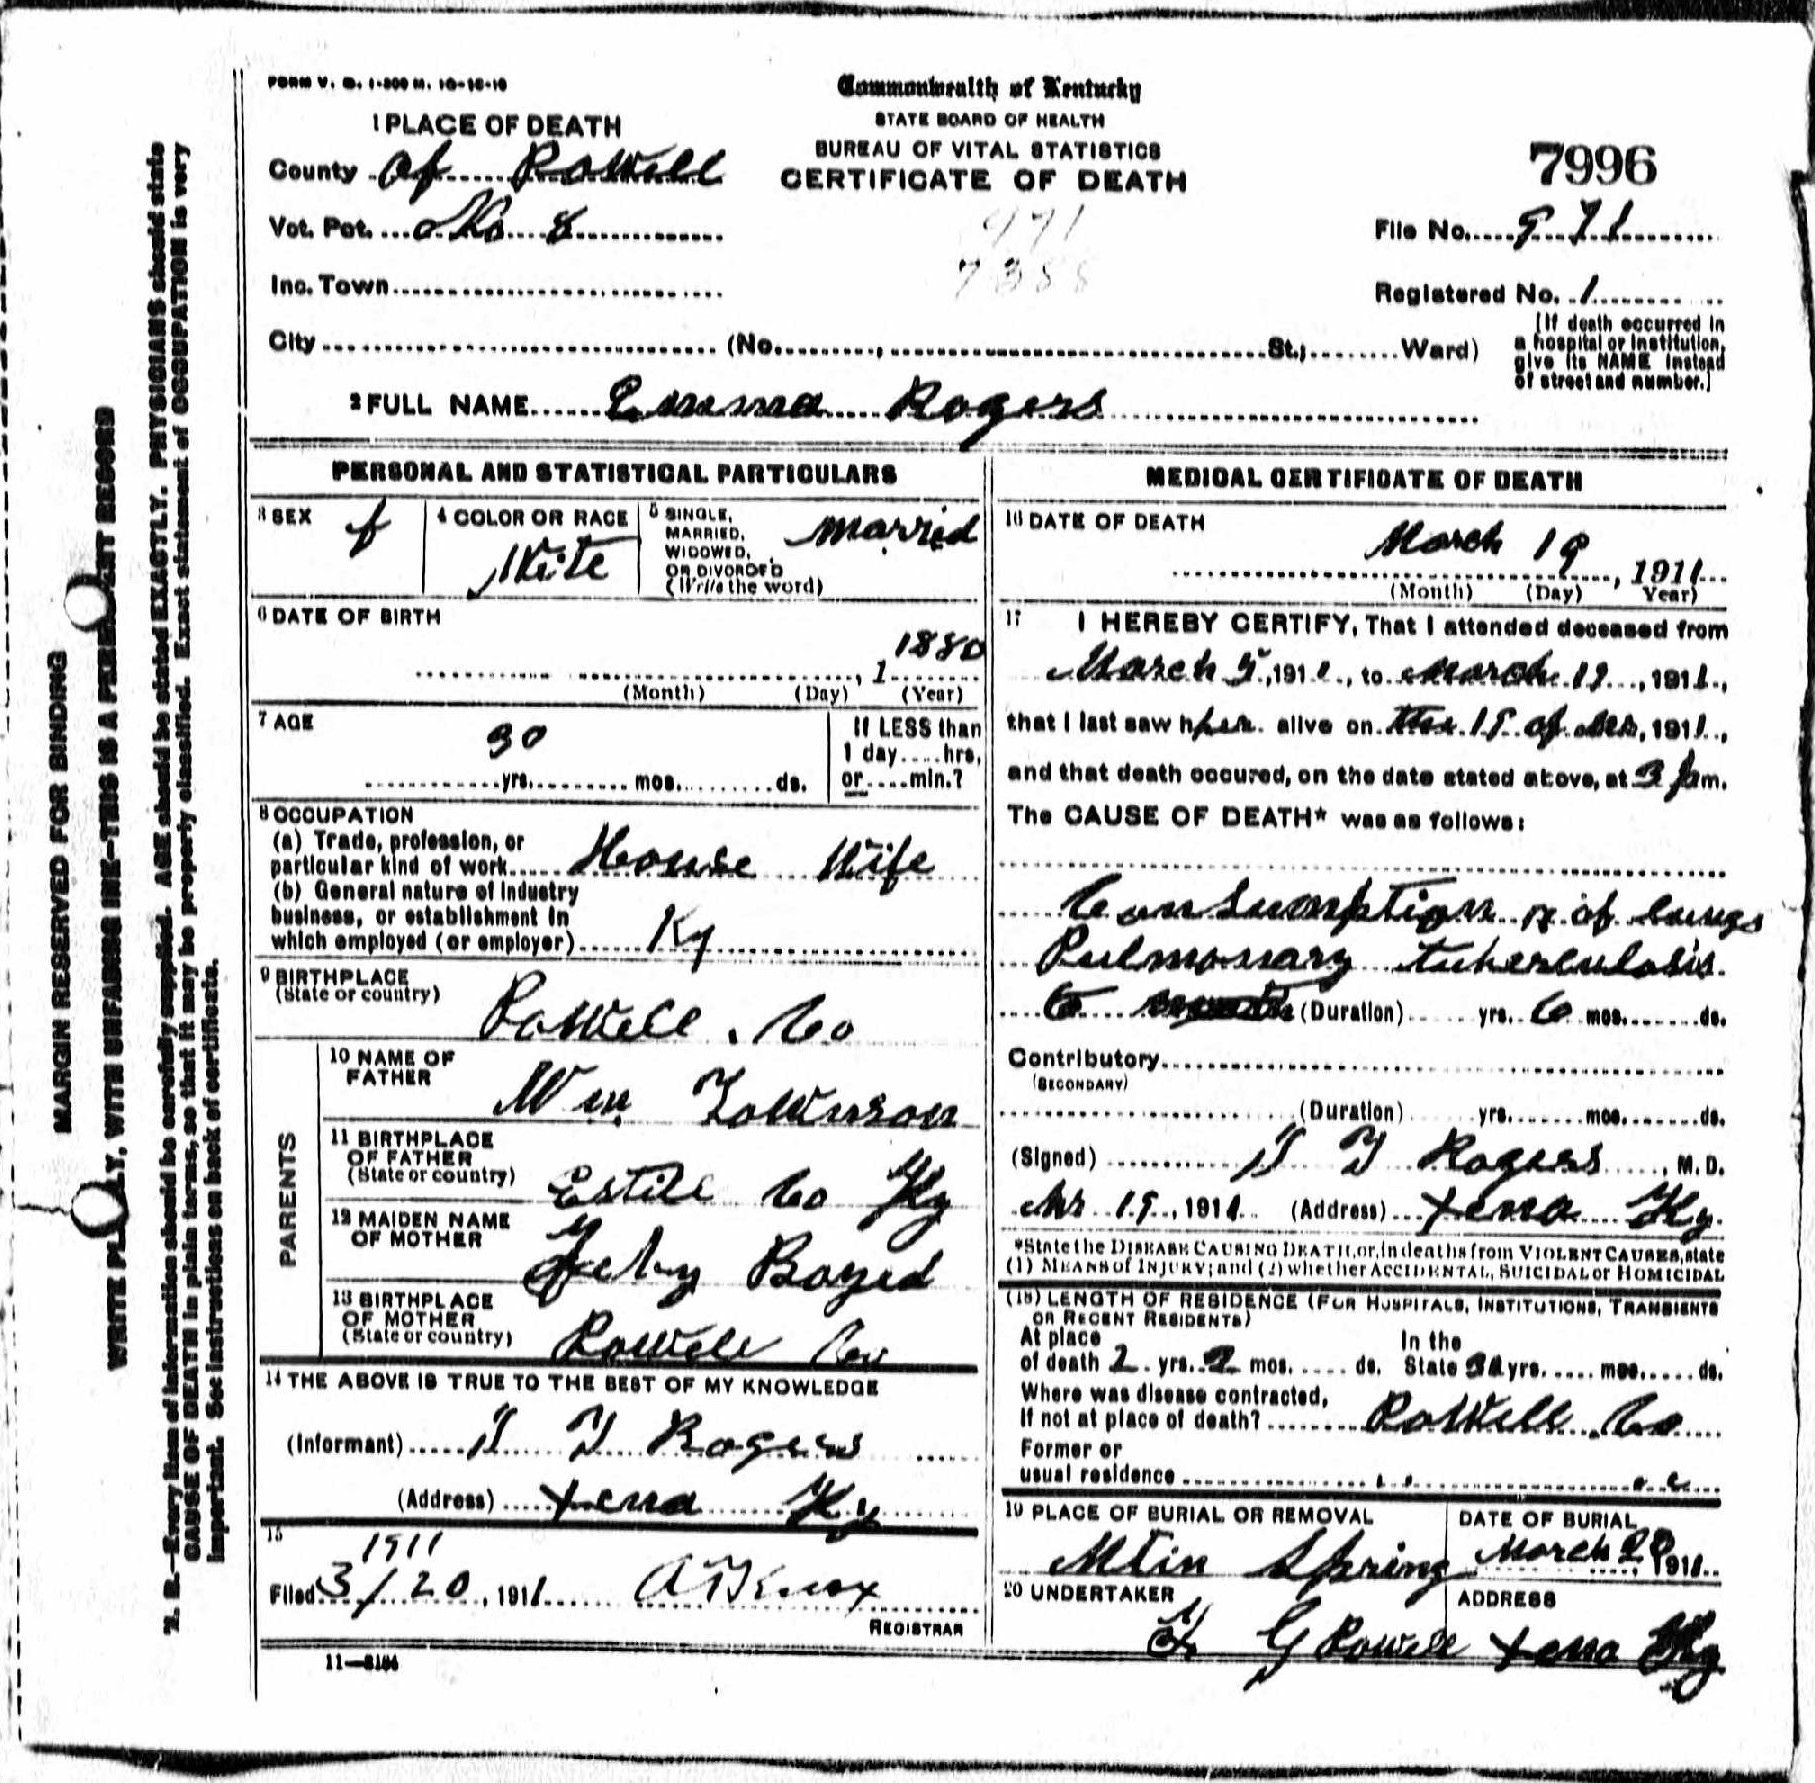 FORM V. S. 1-300 M. 10-18-10
Commonwealth of Kentucky
STATE BOARD OF HEALTH
BUREAU OF VITAL STATISTICS
CERTIFICATE OF DEATH
7996
1 PLACE OF DEATH
County of Powell
Vot. Pct. No 8
971
7388
File No. 971
Inc. Town
Registered No. 1
City (No. , St.; Ward)
[If death occurred in
a hospital or institution,
give its NAME instead
of street and number.]
2 FULL NAME Emma Rogers
PERSONAL AND STATISTICAL PARTICULARS
3 SEX f
4 COLOR OR RACE White
5 SINGLE,
MARRIED,
WIDOWED,
OR DIVORCED
(Write the word)
Marrid
6 DATE OF BIRTH
1880
, 1
(Month) (Day) (Year)
7 AGE
30
yrs. mos. ds.
If LESS than
1 day....hrs,
or....min.?
8 OCCUPATION
(a) Trade, profession, or
particular kind of work House Wife
(b) General nature of Industry
business, or establishment in
which employed (or employer) Ky
9 BIRTHPLACE
(State or country)
Powell Co
PARENTS
10 NAME OF
FATHER
Wm Townson
11 BIRTHPLACE
OF FATHER
(State or country) Estill Co Ky
12 MAIDEN NAME
OF MOTHER
Boyed
13 BIRTHPLACE
OF MOTHER
(State or country) Powell Co
14 THE ABOVE IS TRUE TO THE BEST OF MY KNOWLEDGE
(Informant) Rogers
(Address) Xena Ky
15
1911
Filed 3/20, 1911 A T Knox
REGISTRAR
11—5184
MEDICAL CERTIFICATE OF DEATH
16 DATE OF DEATH
March 19, 1911
(Month) (Day) Year)
17 I HEREBY CERTIFY, That I attended deceased from
March 5, 1911, to March 19, 1911,
that I last saw her alive on the 19 of Mr, 1911,
and that death occured, on the date stated above, at 3 am.
The CAUSE OF DEATH* was as follows:
Consumption of lungs
Pulmonary tuberculosis
6 months (Duration) yrs. 6 mos. ds.
Contributory
(SECONDARY)
(Duration) yrs. mos. ds.
(Signed) Rogers, M. D.
Mr 19, 1911 (Address) Xena Ky.
*State the DISEASE CAUSING DEATH, or, in deaths from VIOLENT CAUSES, state
(1) MEANS of INJURY; and (2) whether ACCIDENTAL, SUICIDAL or HOMICIDAL
(18) LENGTH OF RESIDENCE (FOR HOSPITALS, INSTITUTIONS, TRANSIENTS
OR RECENT RESIDENTS)
At place In the
of death 2 yrs. 2 mos. ds. State yrs. mos. ds.
Where was disease contracted,
If not at place of death? Powell Co
Former or
usual residence
19 PLACE OF BURIAL OR REMOVAL
Mtin Spring
DATE OF BURIAL
March 20 1911
20 UNDERTAKER
G Powell
ADDRESS
Xena Ky
MARGIN RESERVED FOR BINDING
WRITE PLAINLY, WITH UNFADING INK—THIS IS A PERMANENT RECORD
N. B.—Every item of information should be carefully supplied. AGE should be stated EXACTLY. PHYSICIANS should state
CAUSE OF DEATH in plain terms, so that it may be properly classified. Exact statement of OCCUPATION is very
important. See instructions on back of certificate.